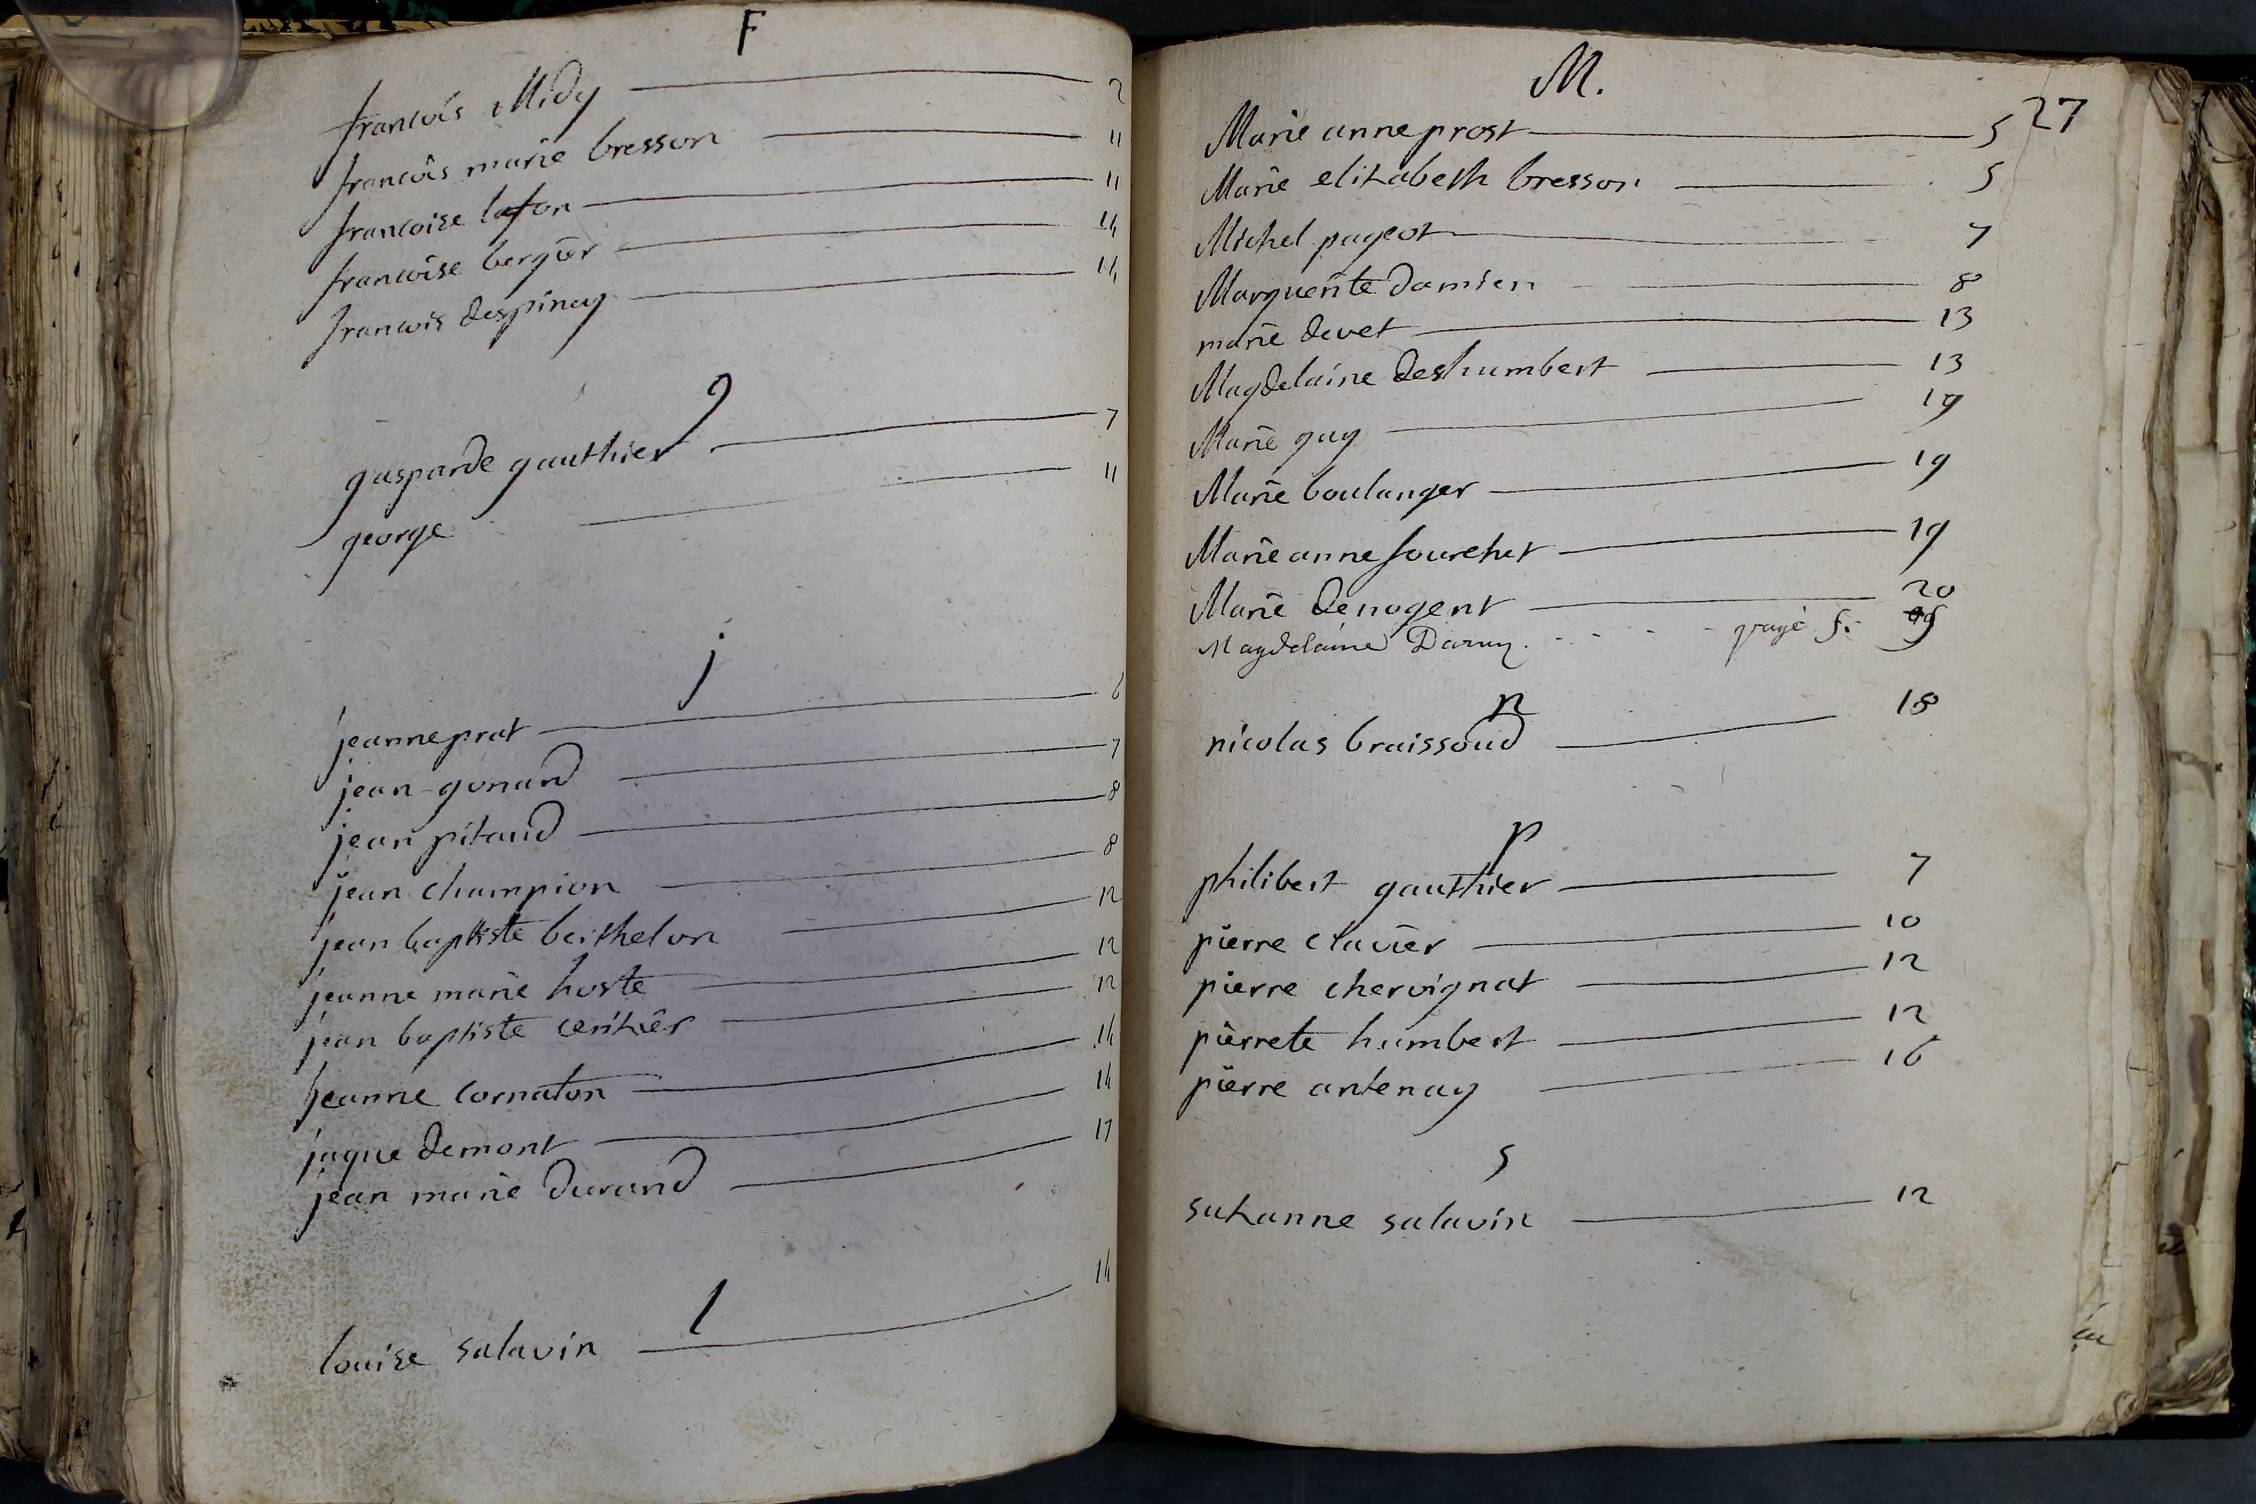 F
francois Midy 2
francois marie bresson 11
francoise lafon 11
francoise bergier 14
francois despinay 14
g
gasparde gauthier 7
george 11
j
jeanne prat 6
jean gonard 7
jean pitaud 8
jean champion 8
jean baptiste berthelon 12
jeanne marie hoste 12
jean baptiste cerisier 12
jeanne cornaton 14
jaque demont 14
jean marie durand 17
l
louise salavin 14
M. 27
Marie anne prost 5
Marie elizabeth bresson 5
Michel pageot 7
Marguerite damien 8
marie devet 13
Magdelaine deshumbert 13
Marie guy 19
Marie boulanger 19
Marie anne fourchet 19
Marie denogent 20
Magdelaine page f.
n
nicolas braissoud 18
p
philibert gauthier 7
pierre clavier 10
pierre chervignat 12
pierrete humbert 12
pierre antenay 16
s
suzanne salavin 12